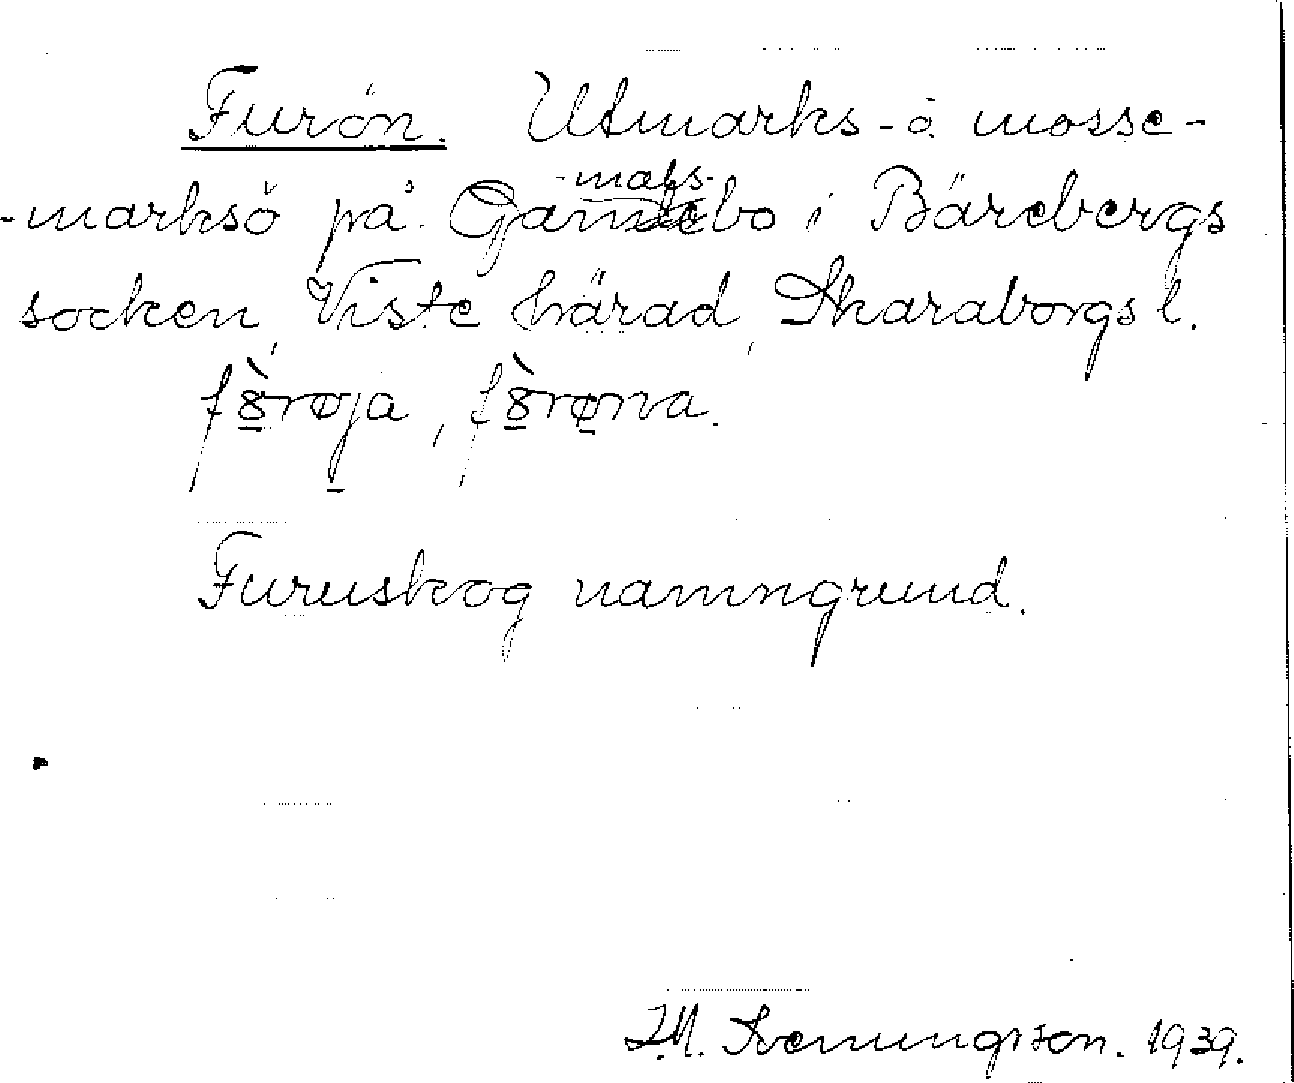 Furön. Utmarks- å mosse-
-marksö på Gammalsbo i Bärebergs
socken, Viste härad, Skaraborgs l.
Furuskog namngrund.
I.M. Svenungsson. 1939.